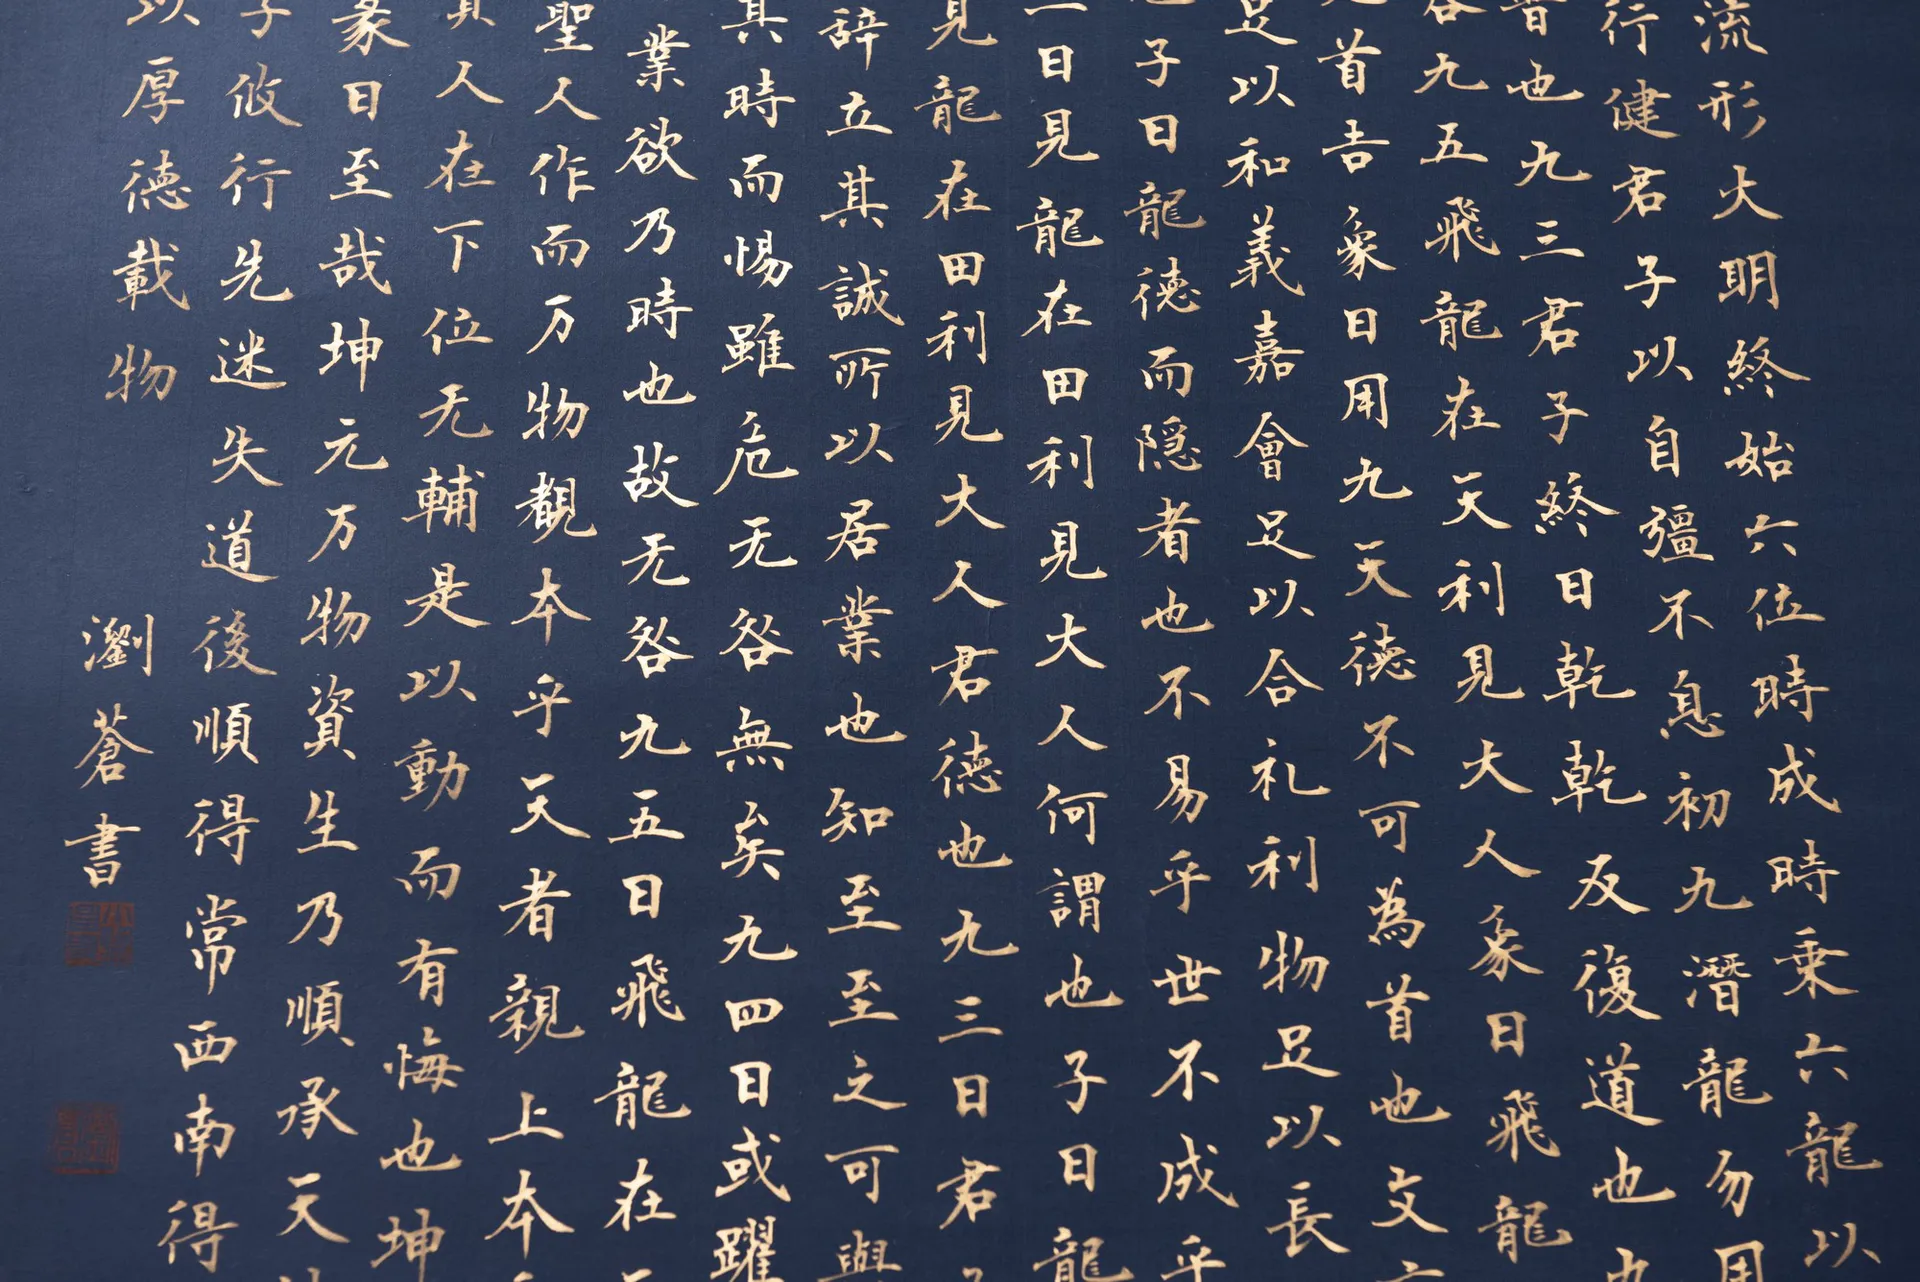 流形大明終始六位時成時乗六龍以
行健君子以自彊不息初九潛龍勿用
也九三君子終日乾乾反復道也
咎九五飛龍在天利見大人象曰飛龍
首吉象曰用九天德不可為首也文
足以和義嘉會足以合礼利物足以長
子曰龍德而隠者也不易乎世不成乎
曰見龍在田利見大人何謂也子曰龍
見龍在田利見大人君德也九三曰君
辞立其誠所以居業也知至至之可與
其時而惕雖危无咎無矣九四曰或躍
業欲乃時也故无咎九五曰飛龍在
聖人作而万物覩本乎天者親上本
人在下位无輔是以動而有悔也坤
彖曰至哉坤元万物資生乃順承天
子攸行先迷失道後順得常西南得
以厚德載物
瀏蒼書